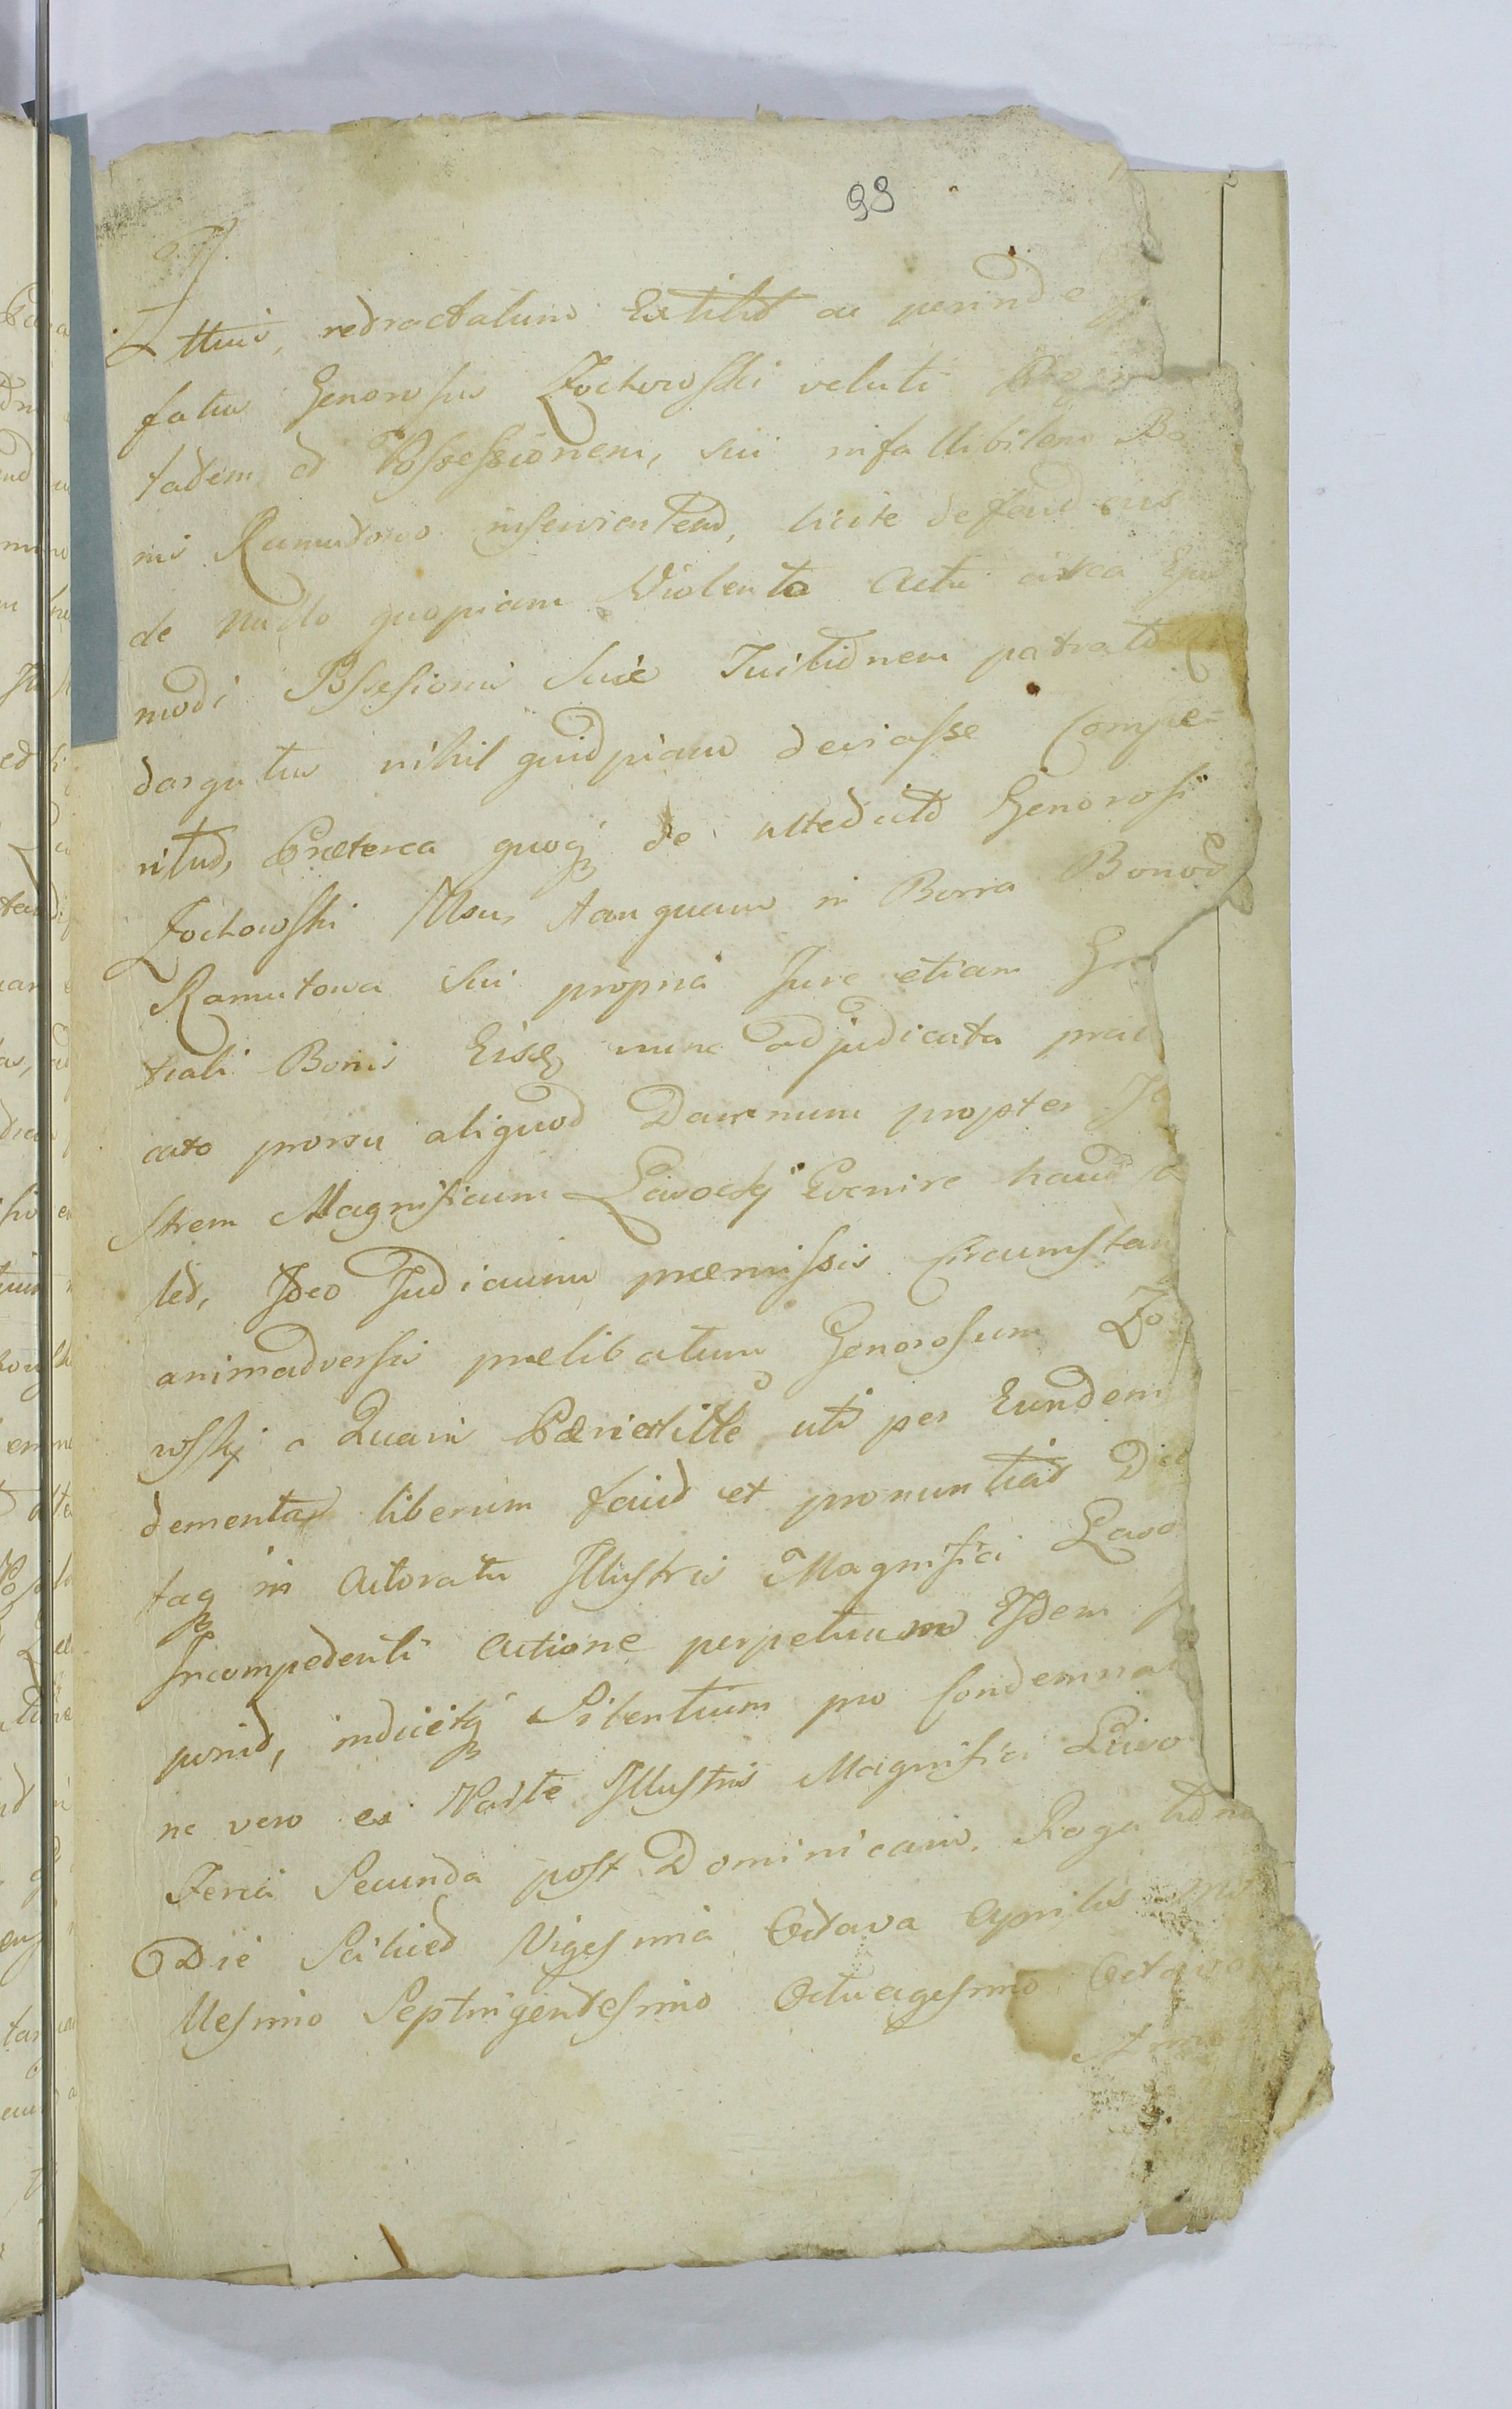 98
ttus, retractatum Extitit ac perinde
fatus Generosus Zochowski veluti
tatem et Possessionem, sui infallibilem Bo
nis Ramutowo inservientem, licite defendens
de nullo quopiam Violento Actu circa Ejus
modi Possesionis Suæ Tuitionem patrato
dargutus nihil quidpiam deviasse Compe=
ritur, Præterea quoq de Attedicto Generosi
Zochowski Usus tanquam in Borra Bonor
Ramutowa Sui propria Jure etiam
trali Bonis Eisq nunc adjudicata prædi
cato prorsu aliquod Damnum propter Ill
strem Magnificum Lasocky Evenire haud
let, Ideo Judicium præmissis Circumstan
animadversis prælibatum Generosum Zo
wsky a Quavis Pænalitte, uti per Eundem
dementa liberum facit et pronuntiat Dic
taq in Actoratu Illustris Magnifici Laso
Incompetenti Actione perpetuum Idem
ponit, indicitq Silentium pro Condemnat
ne vero ex Parte Illustris Magnifici Laso
Feria Secunda post Dominicam Rogationu
Die Scilicet Vigesima Octava Aprilis Mi
llesimo Septingentesimo Octuagesimo Octavo